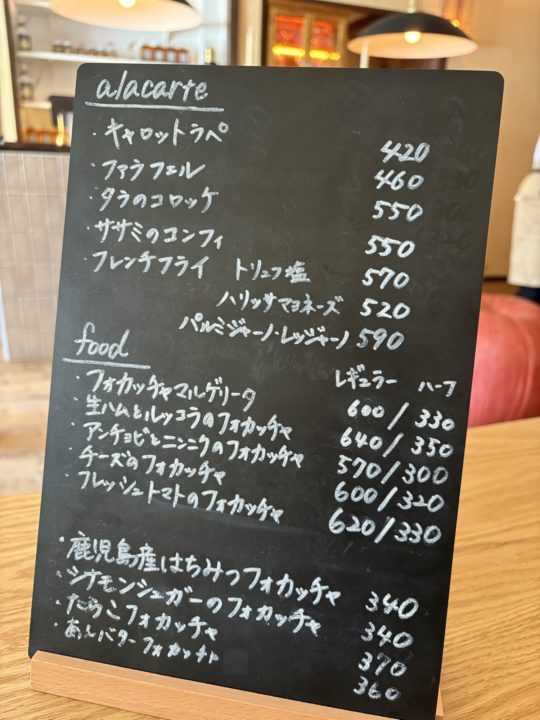 alacarte
・キャロットラペ 420
・ファラフェル 460
・タラのコロッケ 550
・ササミのコンフィ 550
・フレンチフライ トリュフ塩 570
ハリッサマヨネーズ 520
パルミジャーノ・レッジャーノ 590
food
レギュラー ハーフ
・フォカッチャマルゲリータ 600/330
・生ハムとルッコラのフォカッチャ 640/350
・アンチョビとニンニクのフォカッチャ 570/300
・チーズのフォカッチャ 600/320
・フレッシュトマトのフォカッチャ 620/330
・鹿児島産はちみつフォカッチャ 340
・シナモンシュガーのフォカッチャ 340
・たらこフォカッチャ 370
・あんバターフォカッチャ 360